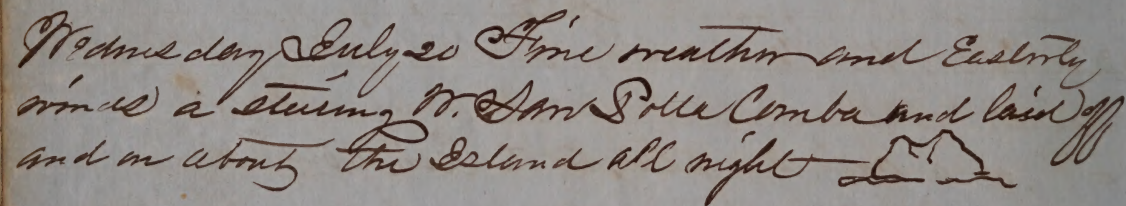 Wednesday July 20 Fine weather and Easterly
winds a stering W. Saw Potta Comba and laid off
and on about the Island all night